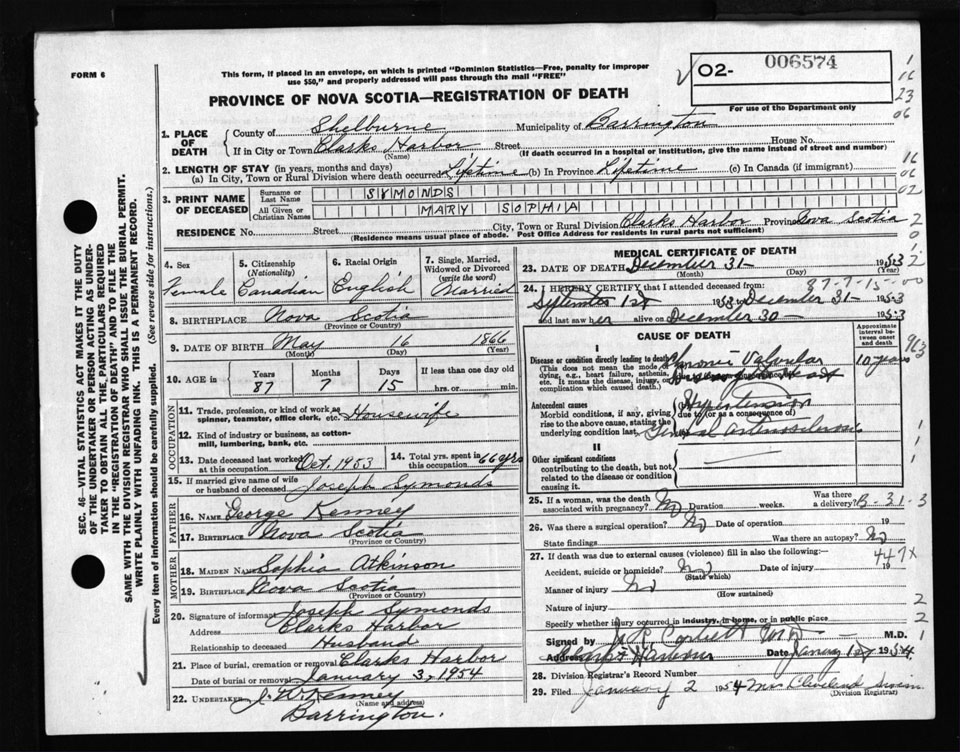 FORM 6
This form, if placed in an envelope, on which is printed "Dominion Statistics—Free, penalty for improper
use $50," and properly addressed will pass through the mail "FREE"
02- 006574
For use of the Department only
PROVINCE OF NOVA SCOTIA—REGISTRATION OF DEATH
1. PLACE OF DEATH
County of Shelburne Municipality of Barrington
If in City or Town Clarks Harbor Street House No.
(Name) (If death occurred in a hospital or institution, give the name instead of street and number)
2. LENGTH OF STAY (in years, months and days)
(a) In City, Town or Rural Division where death occurred Lifetime (b) In Province Lifetime (c) In Canada (if immigrant)
3. PRINT NAME OF DECEASED
Surname or Last Name SYMONDS
All Given or Christian Names MARY SOPHIA
RESIDENCE No. Street City, Town or Rural Division Clarks Harbor Province Nova Scotia
(Residence means usual place of abode. Post Office Address for residents in rural parts not sufficient)
4. Sex
Female
5. Citizenship
(Nationality)
Canadian
6. Racial Origin
English
7. Single, Married,
Widowed or Divorced
(write the word)
Married
8. BIRTHPLACE Nova Scotia
(Province or Country)
9. DATE OF BIRTH May 16 1866
(Month) (Day) (Year)
10. AGE in
Years Months Days If less than one day
87 7 15 hrs. or min.
OCCUPATION
11. Trade, profession, or kind of work as
spinner, teamster, office clerk, etc. Housewife
12. Kind of industry or business, as cotton-
mill, lumbering, bank, etc.
13. Date deceased last worked
at this occupation Oct. 1953
14. Total yrs. spent in
this occupation 66 yrs
15. If married give name of wife
or husband of deceased Joseph Symonds
FATHER
16. Name George Kenney
17. Birthplace Nova Scotia
(Province or Country)
MOTHER
18. Maiden Name Sophia Atkinson
19. Birthplace Nova Scotia
(Province or Country)
20. Signature of informant Joseph Symonds
Address Clarks Harbor
Relationship to deceased Husband
21. Place of burial, cremation or removal Clarks Harbor
Date of burial or removal January 3, 1954
22. Undertaker J. W. Kenney
(Name and address)
Barrington.
MEDICAL CERTIFICATE OF DEATH
23. DATE OF DEATH December 31 1953
(Month) (Day) (Year)
87-7-15-00
24. I HEREBY CERTIFY that I attended deceased from:
September 1st 1953 December 31 1953
and last saw her alive on December 30 1953
CAUSE OF DEATH
Approximate
interval
between
onset
and death
I
Disease or condition directly leading to death
(This does not mean the mode of
dying, e.g., heart failure, asthenia,
etc. It means the disease, injury, or
complication which caused death.)
Chronic Valvular
10 years
Antecedent causes
Morbid conditions, if any, giving
rise to the above cause, stating the
underlying condition last.
due to (or as a consequence of)
Hypertension
General arteriosclerosis
II
Other significant conditions
contributing to the death, but not
related to the disease or condition
causing it.
25. If a woman, was the death
associated with pregnancy? No Duration weeks.
Was there
a delivery?
B-31-3
26. Was there a surgical operation? No Date of operation 19
State findings Was there an autopsy? No
27. If death was due to external causes (violence) fill in also the following:
447X
Accident, suicide or homicide? No Date of injury 19
(State which)
Manner of injury No
(How sustained)
Nature of injury
Specify whether injury occurred in industry, in home, or in public place
Signed by Corbett M.D. M.D.
Address Clarks Harbour Date January 1st 1954
28. Division Registrar's Record Number
29. Filed January 2 1954 Mrs Cleveland
(Division Registrar)
SEC. 46—VITAL STATISTICS ACT MAKES IT THE DUTY
OF THE UNDERTAKER OR PERSON ACTING AS UNDER-
TAKER TO OBTAIN ALL THE PARTICULARS REQUIRED
IN THE "REGISTRATION OF DEATH" AND TO FILE THE
SAME WITH THE DIVISION REGISTRAR WHO SHALL ISSUE THE BURIAL PERMIT.
WRITE PLAINLY WITH UNFADING INK. THIS IS A PERMANENT RECORD.
Every item of information should be carefully supplied. (See reverse side for instructions.)
1
16
23
06
16
06
02
2
963
1
1
1
2
2
1